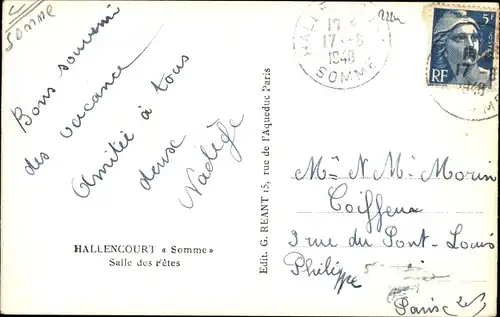 Somme
Bons souvenir
des vacance
Amitiée à tous
deux
Nadège
HALLENCOURT « Somme »
Salle des Fêtes
Edit. G. REANT 15, rue de l'Aqueduc Paris
HALLENCOURT
17 - 8
1948
SOMME
RF
5F
17 - 8
1948
Mr N Me Morin
Coiffeur
3 rue du Pont-Louis
Philippe
Paris